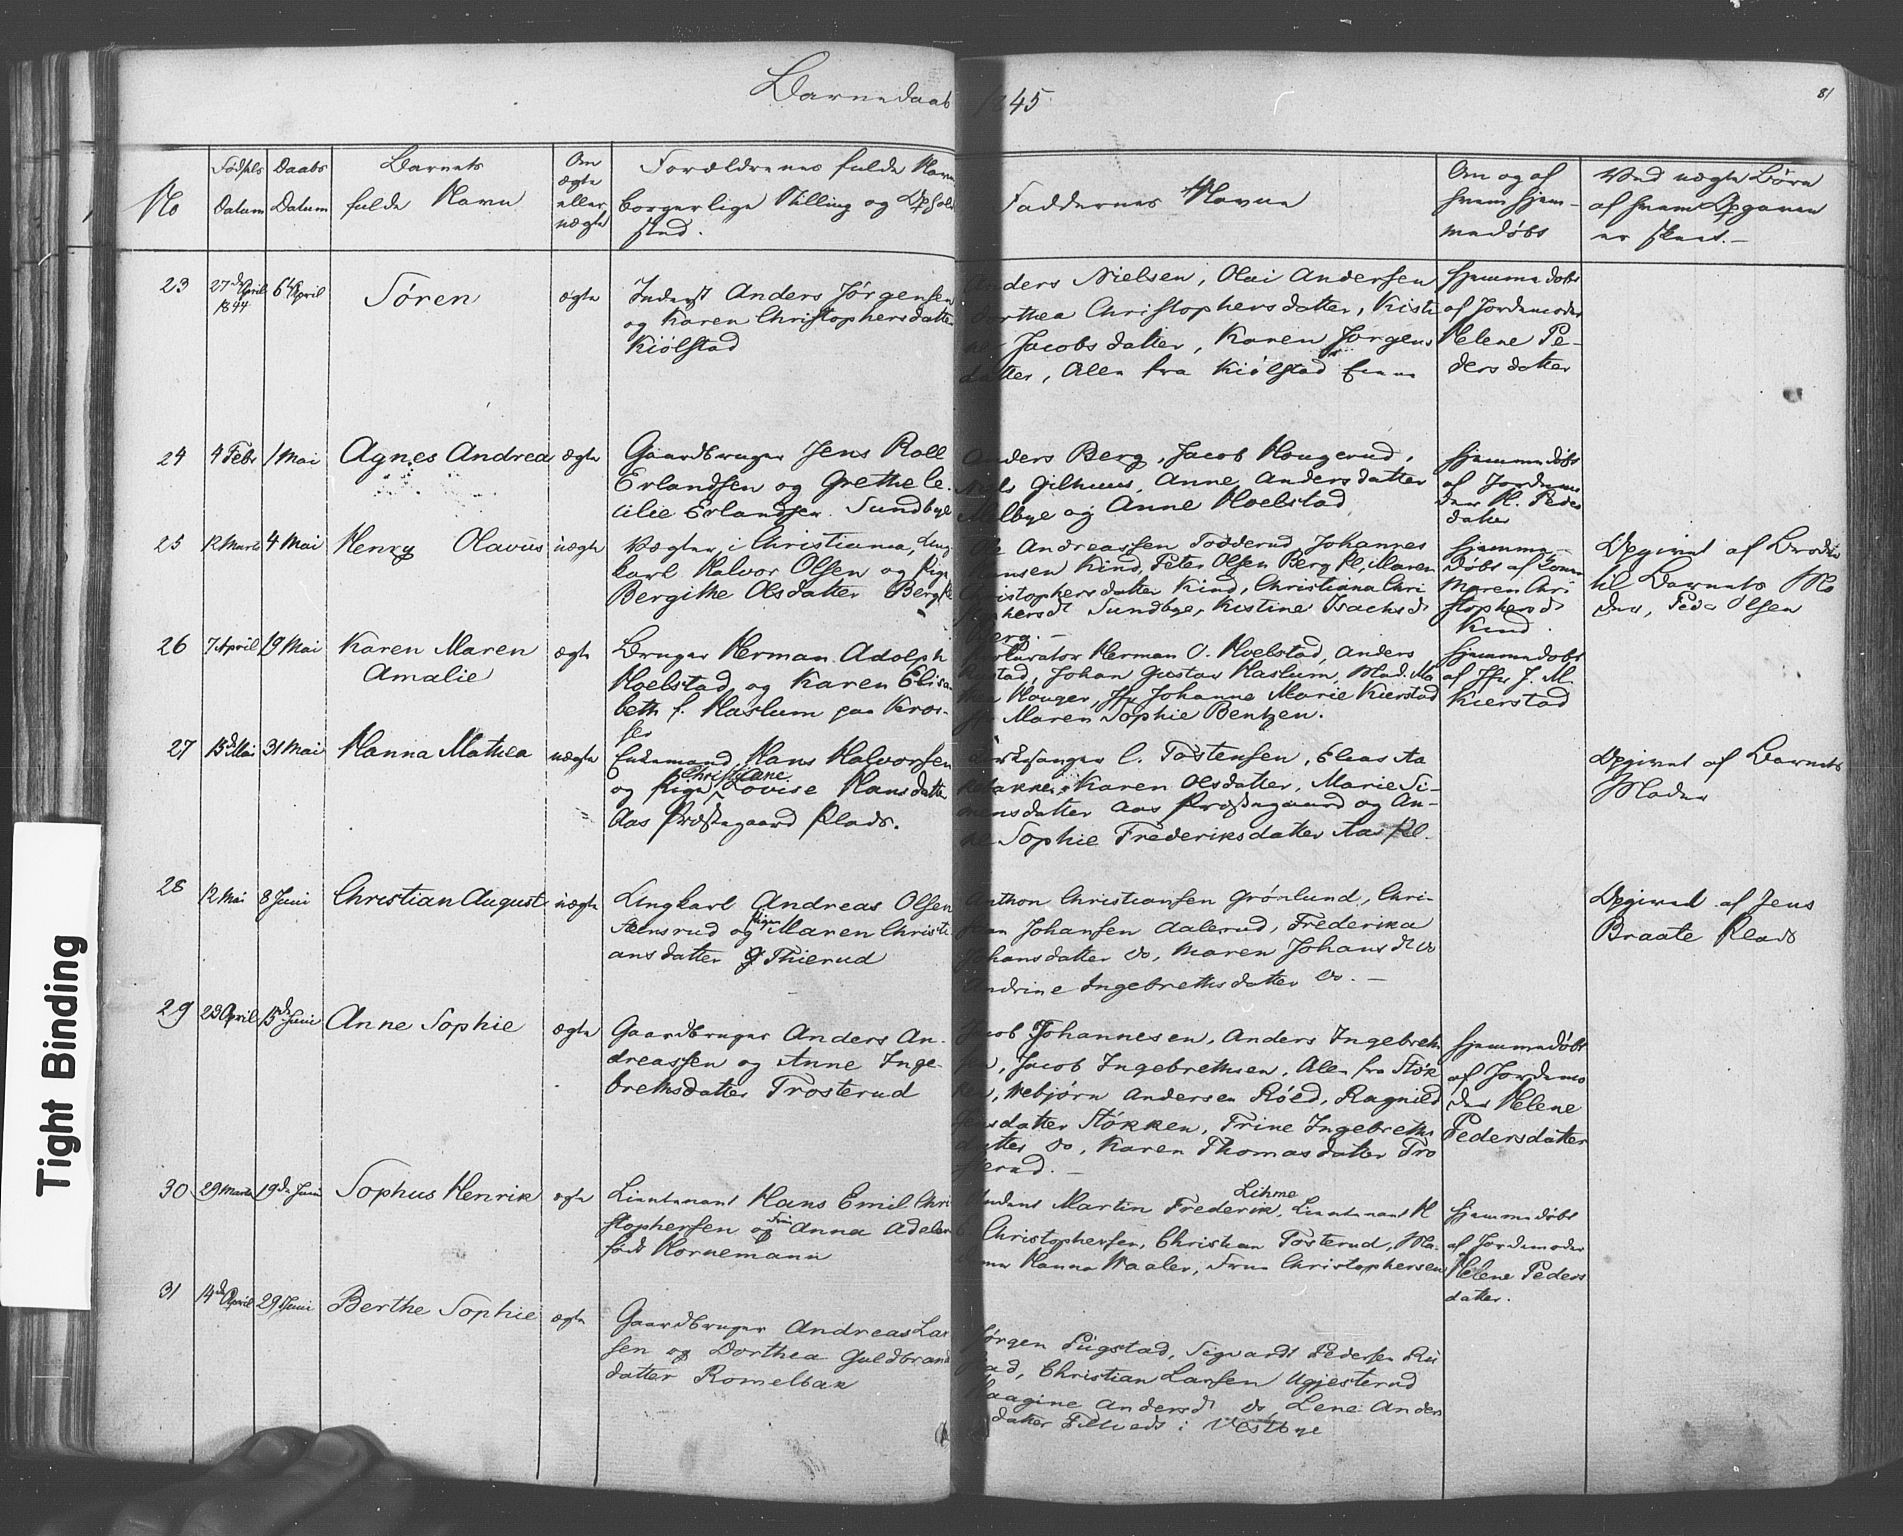 Barnedaab 1845
81
No
Fødsels Datum
Daabs Datum
Barnets fulde Navn
Om ægte eller uægte
Forældrenes fulde Navn
borgerlige Stilling og Ophold
sted.
Faddernes Navne
Om og af
hvem hjem-
medøbt
Ved uægte Børn
af hvem Opgaven
er skeet.-
23
27de April 1844
6 April
Sören
ægte
Inderst Anders Jörgensen
og Karen Christophersdatter
Kiölstad
Anders Nielsen, Olai Andersen
Dorthea Christophersdatter, Kisti
ne Jacobsdatter, Karen Jörgens
datter, Alle fra Kiölstad
Hjemmedøbt
af Jordemoder
Helene Pe-
dersdatter
24
4 Febr
1 Mai
Agnes Andrea
ægte
Gaardbruger Jens Roll
Erlandsen og Grethe Ce-
cilie Erlandsen Sundbye
Anders Berg, Jacob Hougerud,
Niels Gilhuus, Anne Andersdatter
Melbye og Anne Hoelstad
Hjemmedøbt
af Jordemo
der H. Peders
datter
25
12 Marts
4 Mai
Henry Olavus
uægte
Vægter i Christiania, Ung
karl Halvor Olsen og Pige
Bergithe Olsdatter Berg
Ole Andreassen Todderud, Johannes
Hansen Kind, Peter Olsen Berg Pl, Maren
Christophersdatter Kind, Christiana Chri
stophersdt Sundbye, Kistine Isachsd
Berg.-
Hjemme-
døbt af Kone
Maren Chri
stophersd
Kind
Opgivet af Broder
til Barnets Mo
der, Peder Olsen
26
7 April
19 Mai
Karen Maren
Amalie
ægte
Bruger Herman Adolph
Hoelstad og Karen Elisa
beth f. Haslum paa Kros-
ser
Procurator Herman O. Hoelstad, Anders
Rustad, Johan Gustav Haslum, Mad. Ma
ren Houger, Jfr Johanne Marie Kierstad
Jfr Maren Sophie Bentzen.
Hjemmedøbt
af Jfr J. M.
Kierstad
27
13de Mai
31 Mai
Hanna Mathea
uægte
Enkemand Hans Halvorsen
og Pige Christiane Lovise Hansdatter
Aas Præstegaard Plads.
Kirkesanger C. Tostensen, Elias Aa
kebakken, Karen Olsdatter, Marie Si-
monsdatter Aas Præstegaard og An-
ne Sophie Frederiksdatter Aas Pl.
Opgivet af Barnets
Moder
28
12 Mai
8 Juni
Christian August
uægte
Ungkarl Andreas Olsen
Steensrud og Pigen Maren Christi
ansdatter Thierud
Anthon Christiansen Grönlund, Chri-
stian Johansen Aalerud, Frederika
Johansdatter do, Maren Johansdt do
Andrine Ingebrethsdatter do.-
Opgivet af Jens
Braate Plads
29
23 April
15de Juni
Anne Sophie
ægte
Gaardbruger Anders An-
dreassen og Anne Inge-
brethsdatter Trosterud
Jacob Johannesen, Anders Ingebreth
sen, Jacob Ingebrethsen, Alle fra Stök
ken, Nebjörn Andersen Röed, Ragnild
Jensdatter Stökken, Trine Ingebreths
datter do, Karen Thomasdatter Tro
sterud.-
Hjemmedøbt
af Jordemo
der Helene
Pedersdatter
30
29 Marts
19de Juni
Sophus Henrik
ægte
Lieutenant Hans Emil Chri
stophersen og Fru Anna Adeler
født Hornemann
Student Martin Frederik Lihme, Lieutenant H
E Christophersen, Christian Tosterud, Ma-
dame Hanna Waaler, Frue Christophersen
Hjemmedøbt
af Jordemoder
Helene Peders
datter.
31
14de April
29 Juni
Berthe Sophie
ægte
Gaardbruger Andreas Lar
sen og Dorthea Guldbrand
datter Romelbak
Jörgen Sugstad, Sigvardt Pedersen Ru
stad, Christian Larsen Ugjesterud
Haagine Andersdt do Lene Anders
datter Filtvedt i Vestbye
Tight Binding